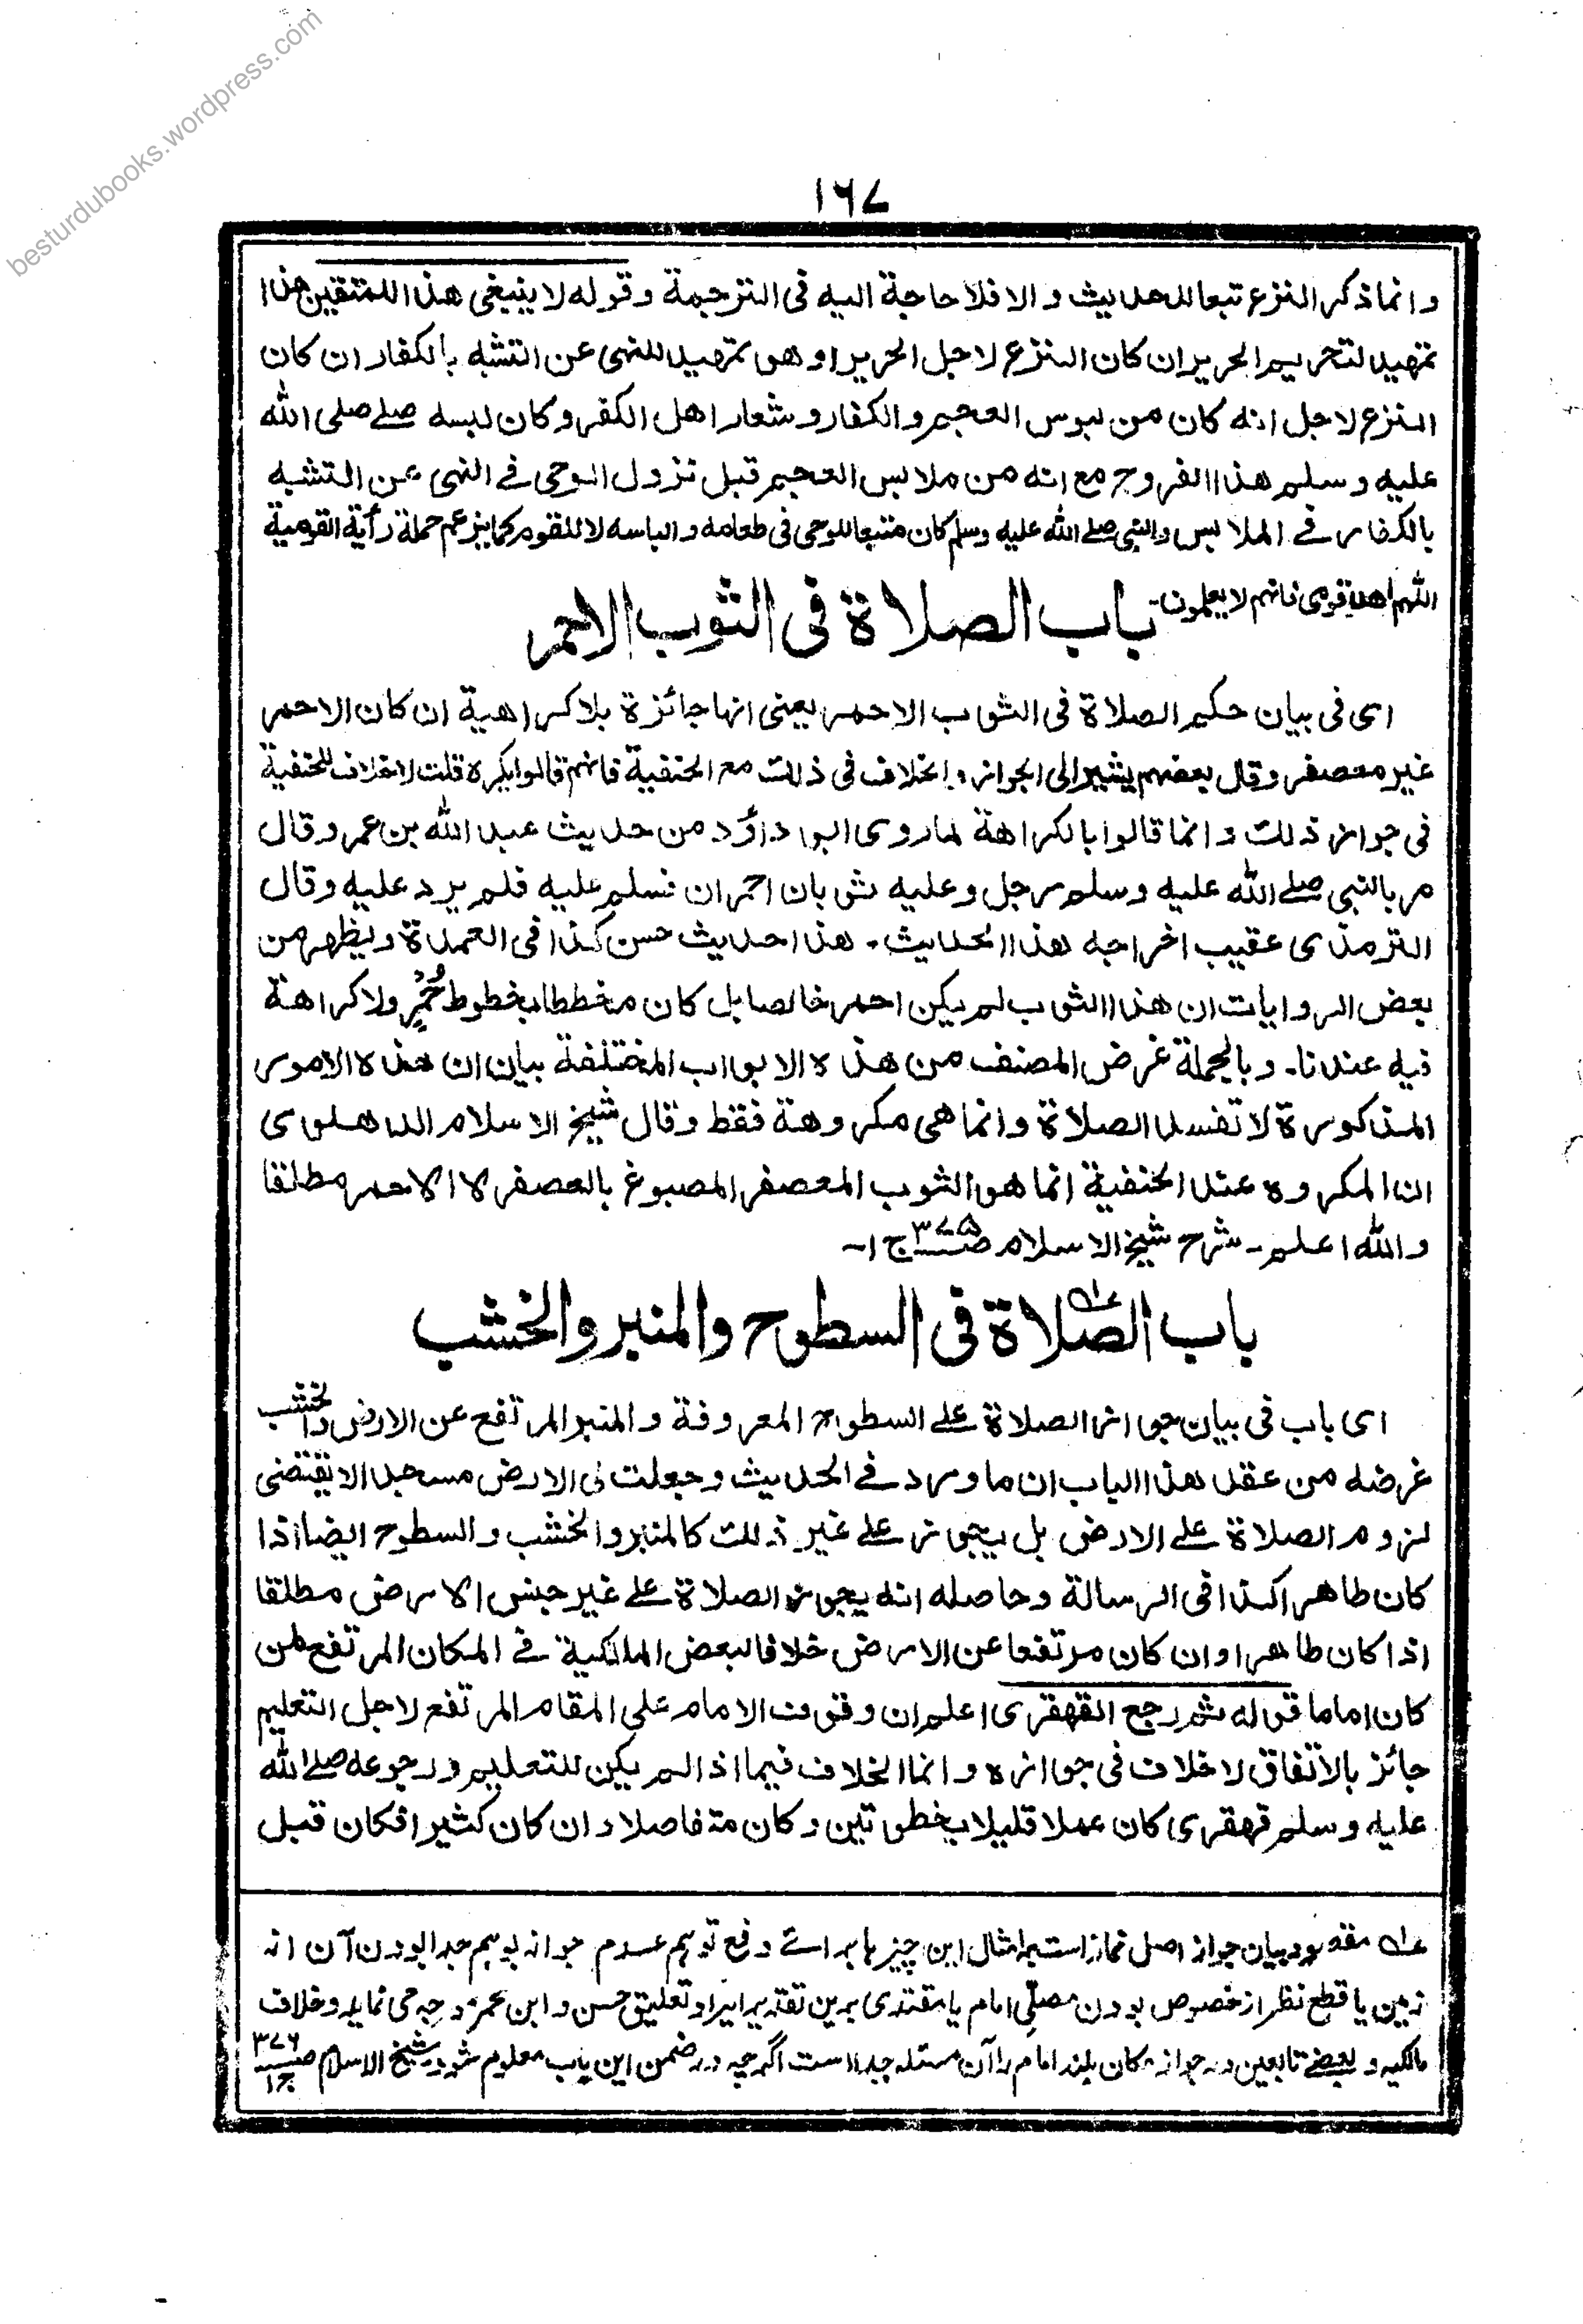 besturdubooks.wordpress.com
١٦٧
وانما ذكر النزع تبعا للحديث والا فلا حاجة اليه فى الترجمة وقوله لا ينبغى هذا للمتقين هذا
تمهيد لتحريم الحرير ان كان النزع لاجل الحرير او هو تمهيد للنهى عن التشبه بالكفار ان كان
النزع لاجل انه كان من لبوس العجم والكفار وشعار اهل الكفر وكان لبسه صلے صلى الله
عليه وسلم هذا الفروج مع انه من ملابس العجم قبل نزول الوحى فے النهى عن التشبه
بالكفار فے الملابس والنبى صلے الله عليه وسلم كان متبعا للوحى فى طعامه والباسه لا للقوم كما يزعم حملة رأية القومية
اللهم اهد قومى فانهم لا يعلمون۔
باب الصلاة فى الثوب الاحمر
اى فى بيان حكم الصلاة فى الثوب الاحمر يعنى انها جائزة بلا كراهية ان كان الاحمر
غير معصفر وقال بعضهم يشير الى الجواز والخلاف فى ذلك مع الحنفية فانهم قالوا يكره قلت لا خلاف للحنفية
فى جواز ذلك وانما قالوا بالكراهة لما روى ابو داؤد من حديث عبد الله بن عمرو قال
مر بالنبى صلے الله عليه وسلم رجل وعليه ثوبان احمران فسلم عليه فلم يرد عليه وقال
الترمذى عقيب اخراجه هذا الحديث۔ هذا حديث حسن كذا فى العمدة ويظهر من
بعض الروايات ان هذا الثوب لم يكن احمر خالصا بل كان مخططا بخطوط حُمْرٍ ولا كراهة
فيه عندنا۔ وبالجملة غرض المصنف من هذه الابواب المختلفة بيان ان هذه الامور
المذكورة لا تفسد الصلاة وانما هى مكروهة فقط وقال شيخ الاسلام الدهلوى
ان المكروه عند الحنفية انما هو الثوب المعصفر المصبوغ بالعصفر لا الاحمر مطلقا
والله اعلم۔ شرح شيخ الاسلام صـ٣٧٥ ج ١۔
باب الصّلاة فى السطوح والمنبر والخشب
اى باب فى بيان جواز الصلاة علے السطوح المعروفة والمنبر المرتفع عن الارض والخشب
غرضه من عقد هذا الباب ان ما ورد فے الحديث وجعلت لى الارض مسجدا لا يقتضى
لزوم الصلاة علے الارض بل يجوز علے غير ذلك كالمنبر والخشب والسطوح ايضا اذا
كان طاهرا كذا فى الرسالة وحاصله انه يجوز الصلاة علے غير جنس الارض مطلقا
اذا كان طاهرا وان كان مرتفعا عن الارض خلافا لبعض المالكية فے المكان المرتفع لمن
كان اماما قوله ثم رجع القهقرى اعلم ان وقوف الامام على المقام المرتفع لاجل التعليم
جائز بالاتفاق لا خلاف فى جوازه وانما الخلاف فيما اذا لم يكن للتعليم ورجوعه صلے الله
عليه وسلم قهقرى كان عملا قليلا بخطوتين وكان متفاصلا وان كان كثيرا فكان قبل
عــه مقصود بيان جواز اصل نماز است بر امثال اين چيز ها برائے دفع توهم عدم جواز بوهم جدا بودن آن از
زمين يا قطع نظر از خصوص بودن مصلى امام يا مقتدى برين تقدير ايراد تعليق حسن و ابن عمر وجہ می نمايد و خلاف
مالكيه و بعضے تابعين در جواز مكان بلند امام را آن مسئله جدا است اگرچه در ضمن اين باب معلوم شود شيخ الاسلام صـ٣٧٦ ج١